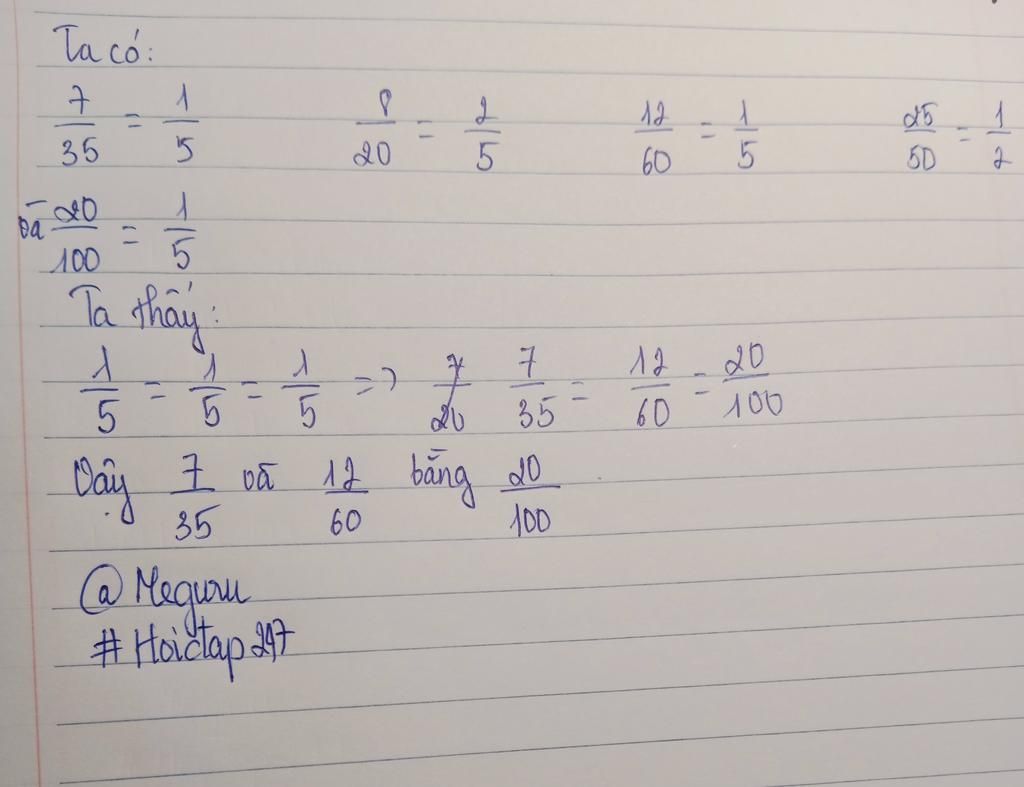 Ta có:
7/35 = 1/5 8/20 = 2/5 12/60 = 1/5 25/50 = 1/2
và 20/100 = 1/5
Ta thấy:
1/5 = 1/5 = 1/5 => 7/35 = 12/60 = 20/100
Vậy 7/35 và 12/60 bằng 20/100
@Meguru
#Hoictap247